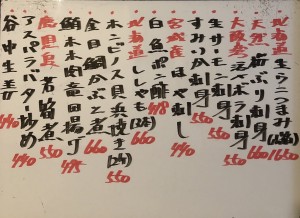 北海道 生ウニつまみ(山盛) 1650
天然 岩ぶり刺身 660
大阪産 活〆ボラ刺身 550
生サーモン刺身 550
すみいか刺身 550
宮城産 ほや刺し 440
白魚ポン酢 418
北海道 ししゃも(3本) 660
ホンビノス貝浜焼き(2ヶ) 550
金目鯛かぶと煮 660
鯖木の肉竜田揚げ 495
鹿児島 若筍煮 550
アスパラバター炒め 440
谷中生姜 440